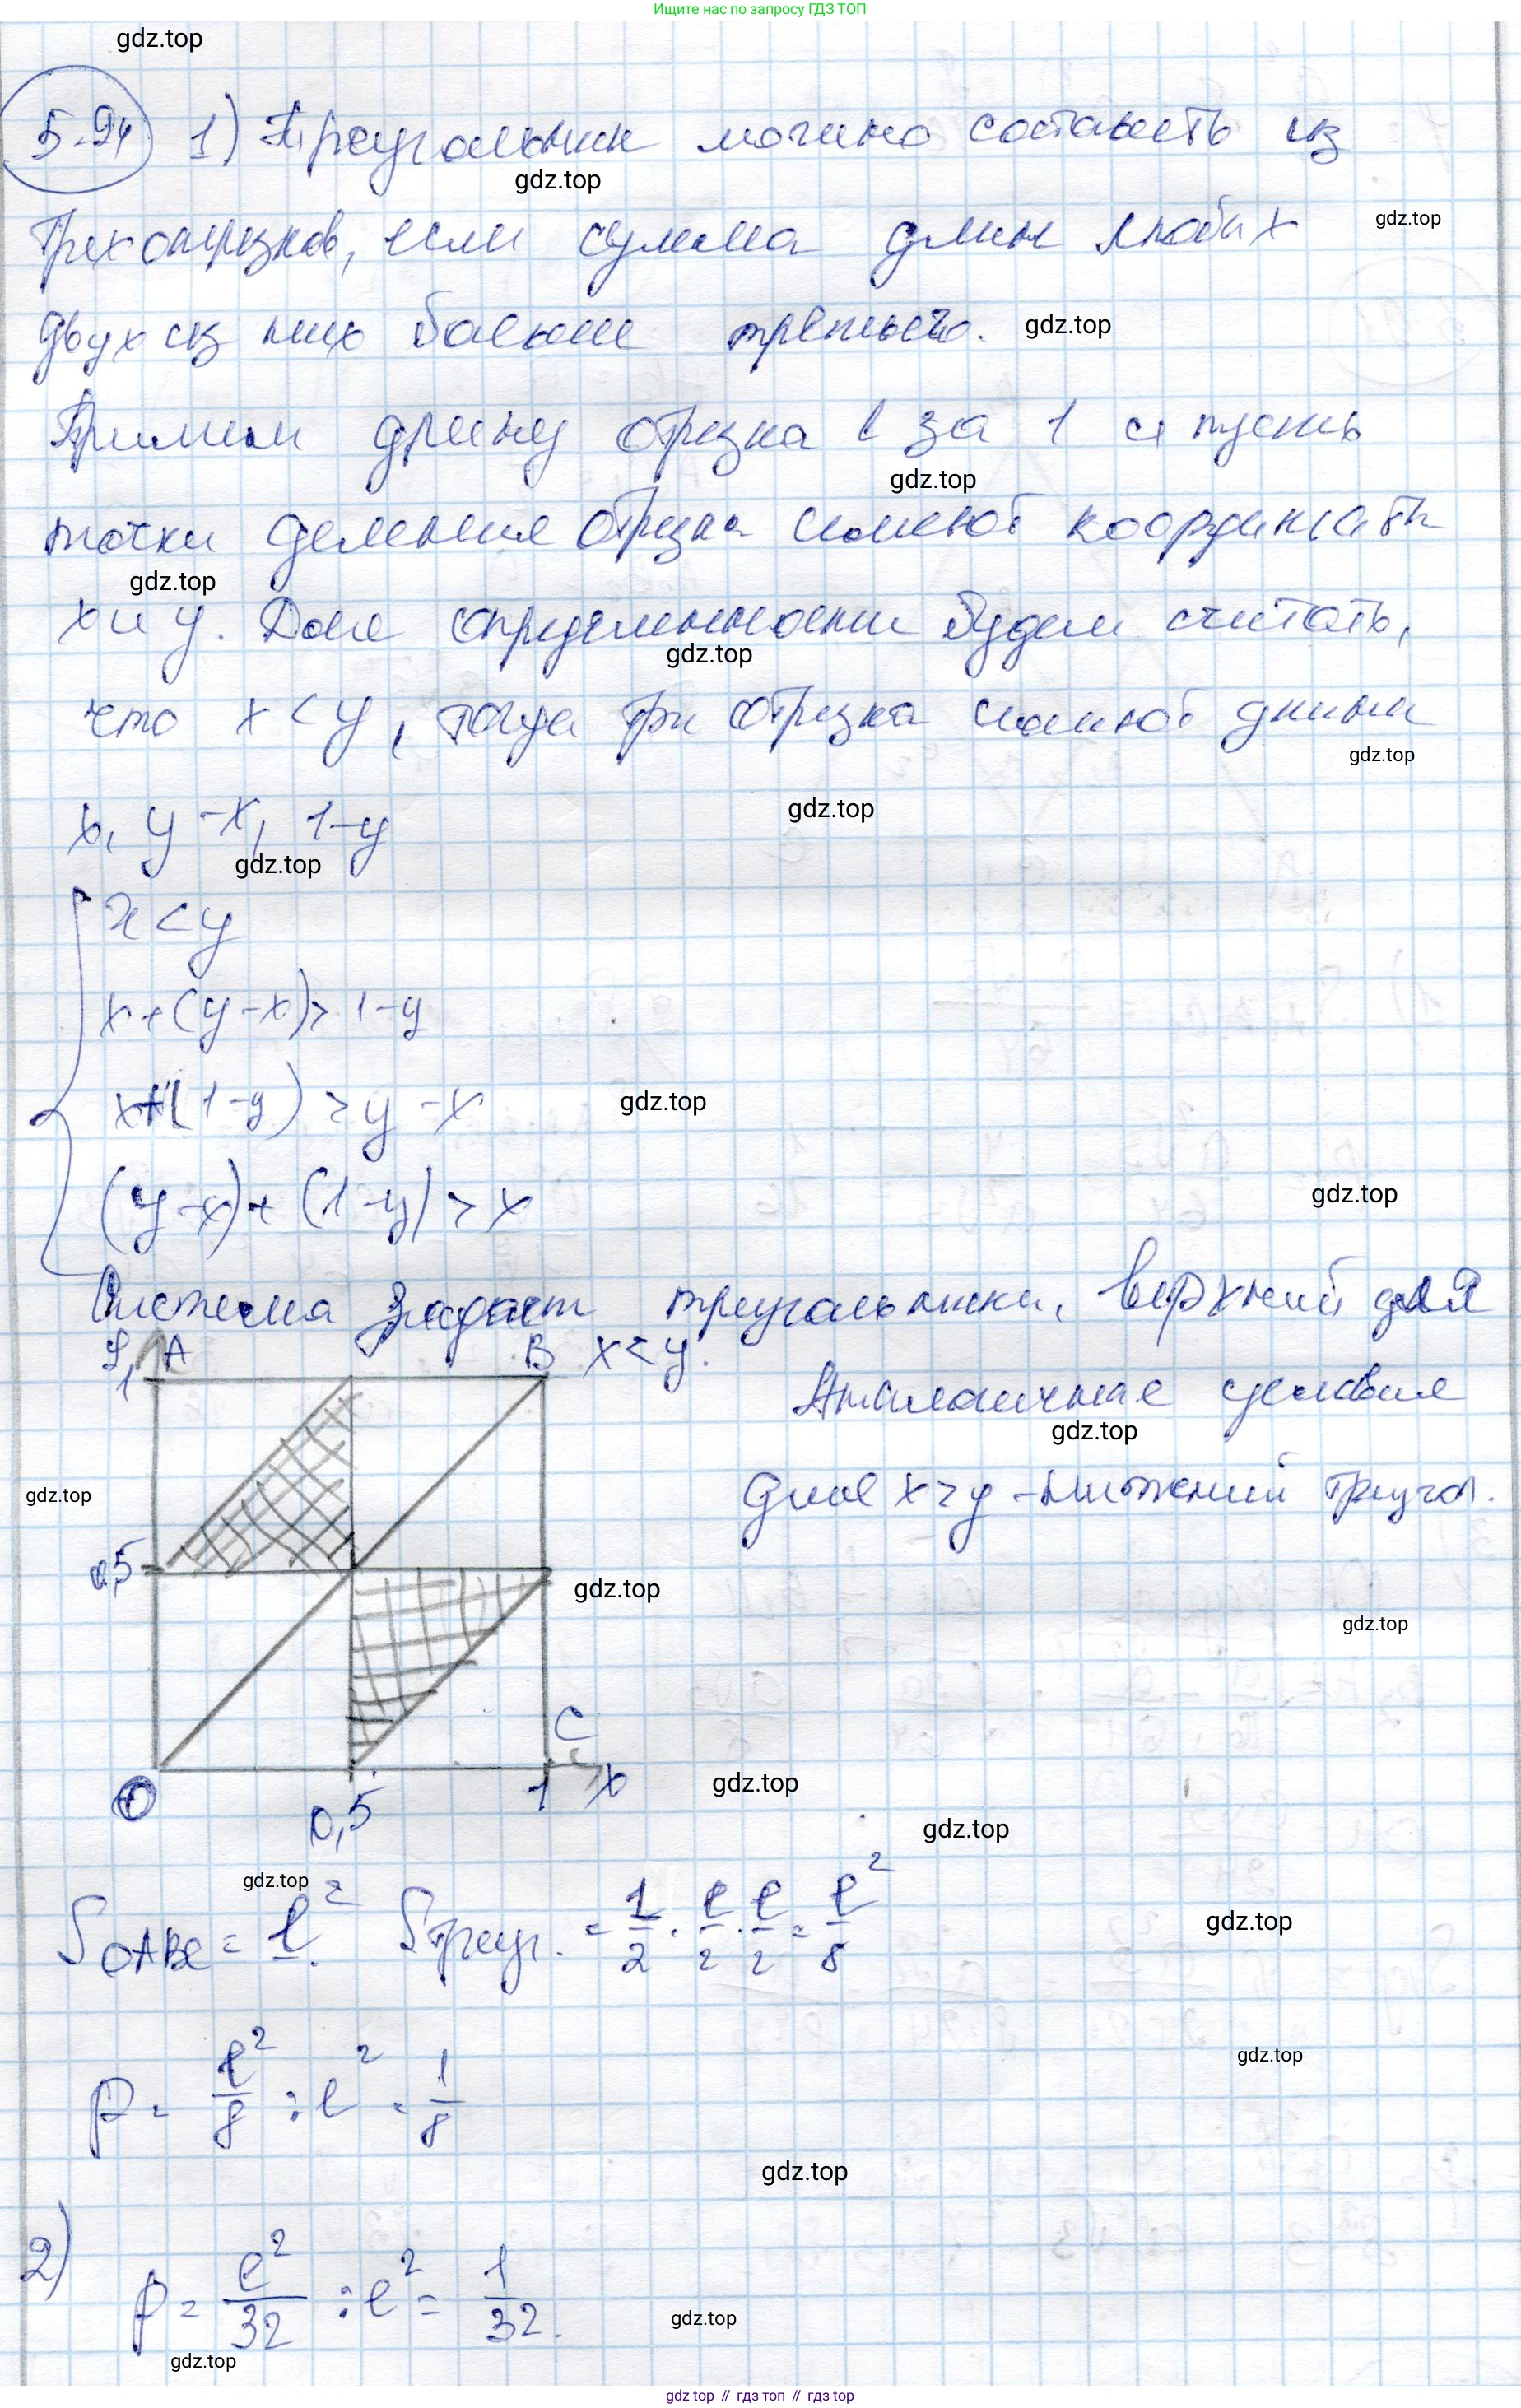 Ищите нас по запросу ГДЗ ТОП
gdz.top
5.94 1) Треугольник можно составить из
gdz.top
трех отрезков, если сумма длин любых
gdz.top
двух из них больше третьего.
gdz.top
Примем длину отрезка l за 1 и пусть
gdz.top
точки деления отрезка имеют координаты
gdz.top
x и y. Для определенности будем считать,
gdz.top
что x < y, тогда три отрезка имеют длины
gdz.top
x, y-x, 1-y
gdz.top
gdz.top
x < y
x+(y-x)> 1-y
x+(1-y) > y-x
gdz.top
(y-x)+(1-y) > x
gdz.top
Система задает треугольники, верхний для
y 1 A B x < y.
Аналогичные условия
gdz.top
для x > y - нижний треугол.
gdz.top
0,5
gdz.top
gdz.top
C
0 0,5 1 x
gdz.top
gdz.top
gdz.top
S OABC = l². S треуг. = 1/2 · l/2 · l/2 = l²/8
gdz.top
p = l²/8 : l² = 1/8
gdz.top
gdz.top
2) p = l²/32 : l² = 1/32.
gdz.top
gdz.top
gdz.top // гдз топ // гдз top